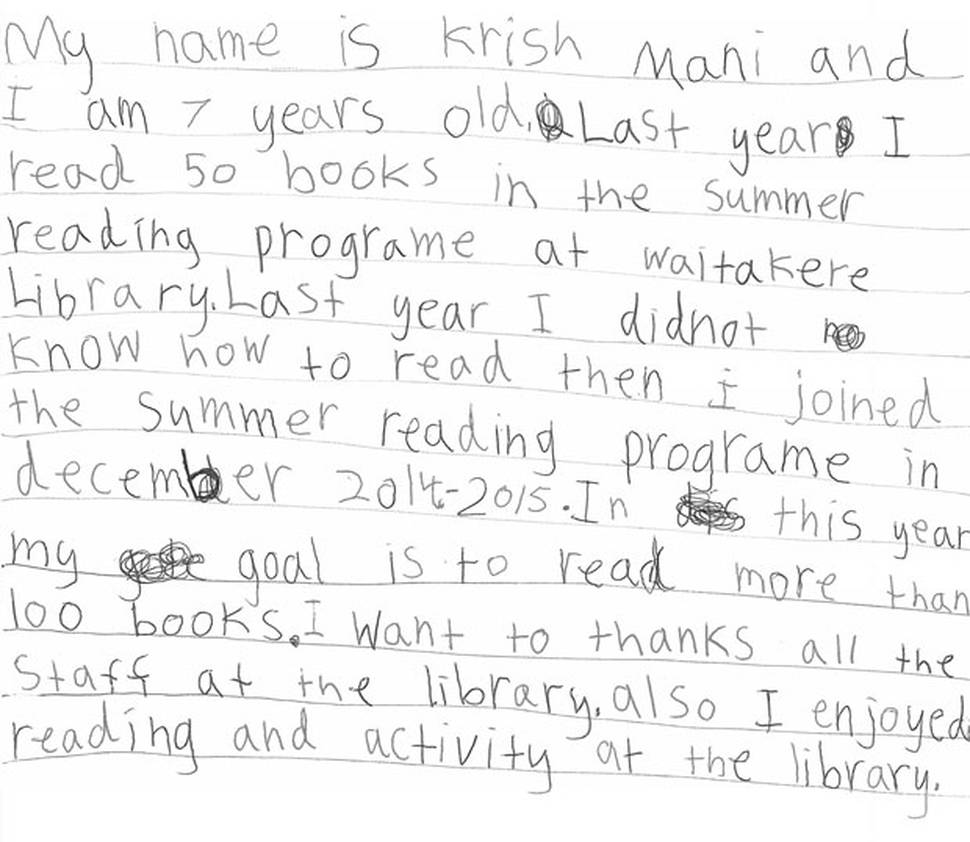 My name is Krish Mani and
I am 7 years old. Last year I
read 50 books in the summer
reading programe at waitakere
Library. Last year I didnot
know how to read then i joined
the summer reading programe in
december 2014-2015. In this year
my goal is to read more than
100 books. I want to thanks all the
Staff at the library. also I enjoyed
reading and activity at the library.